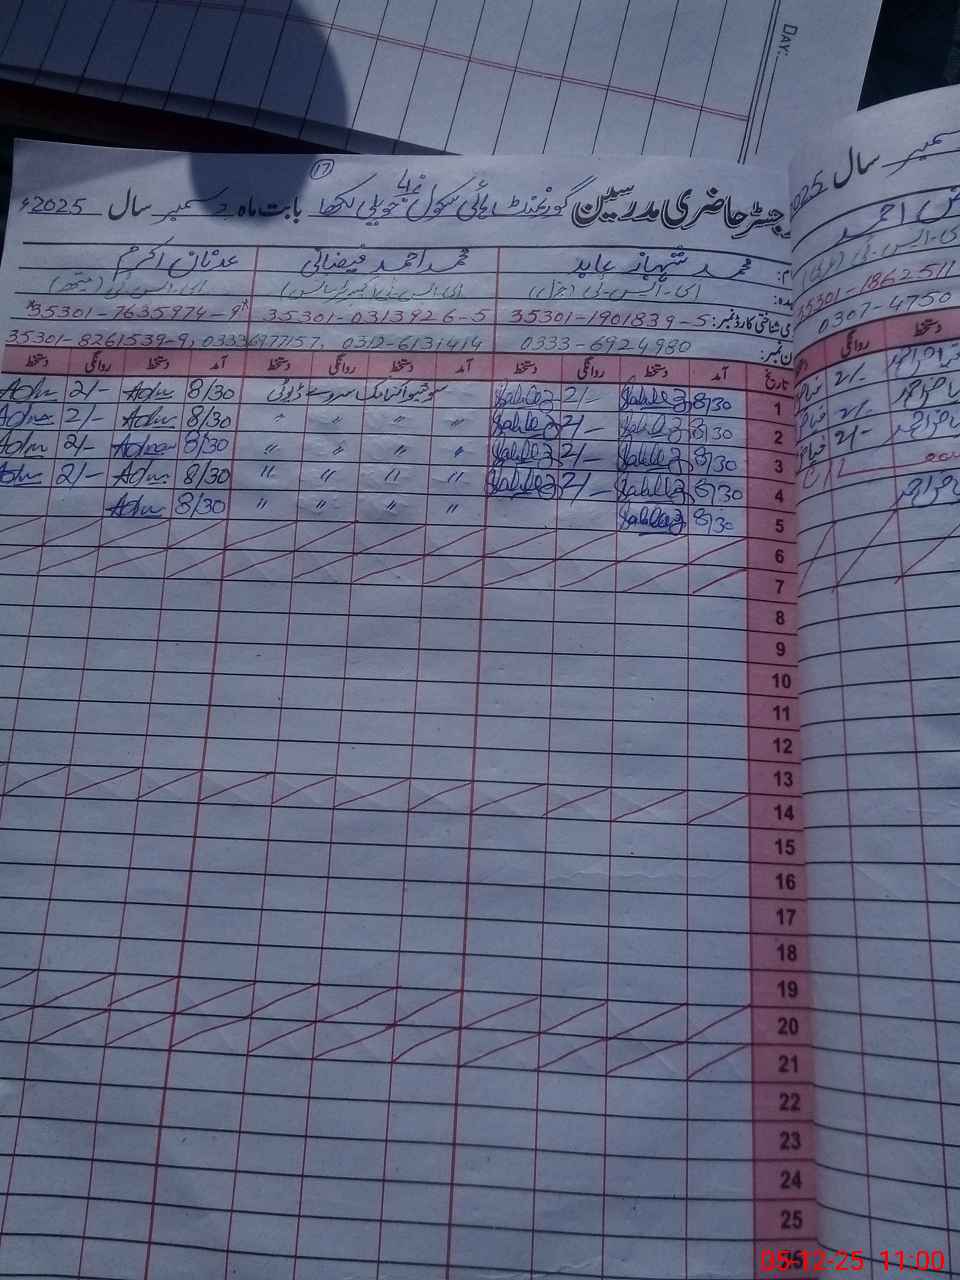 DAY:
17
رجسٹر حاضری مدرسین گورنمنٹ ہائی سکول نمبر 4 حویلی لکھا بابت ماہ دسمبر سال 2025ء
نام: محمد شہباز عابد محمد احمد فیضانی عدنان اکرم
عہدہ: ای۔ایس۔ٹی (جنرل) ای۔ایس۔ٹی ای۔ایس۔ٹی (میتھ)
شناختی کارڈ نمبر: 35301-1901839-5 35301-0313926-5 35301-7635974-9
فون نمبر: 0333-6924980 0312-6131414 03336977157 35301-8261539-9
تاریخ آمد دستخط روانگی دستخط آمد دستخط روانگی دستخط آمد دستخط روانگی دستخط
1 8/30 2/- سروے ڈیوٹی 8/30 Adn 2/- Adn
2 8/30 2/- " " " " 8/30 Adn 2/- Adn
3 8/30 2/- " " " " 8/30 Adn 2/- Adn
4 8/30 2/- " " " " 8/30 Adn 2/- Adn
5 8/30 " " " " 8/30 Adn
6
7
8
9
10
11
12
13
14
15
16
17
18
19
20
21
22
23
24
25
دسمبر سال 2025
احمد
35301-1862511
0307-4750
دستخط روانگی
2/-
2/-
2/-
05-12-25 11:00